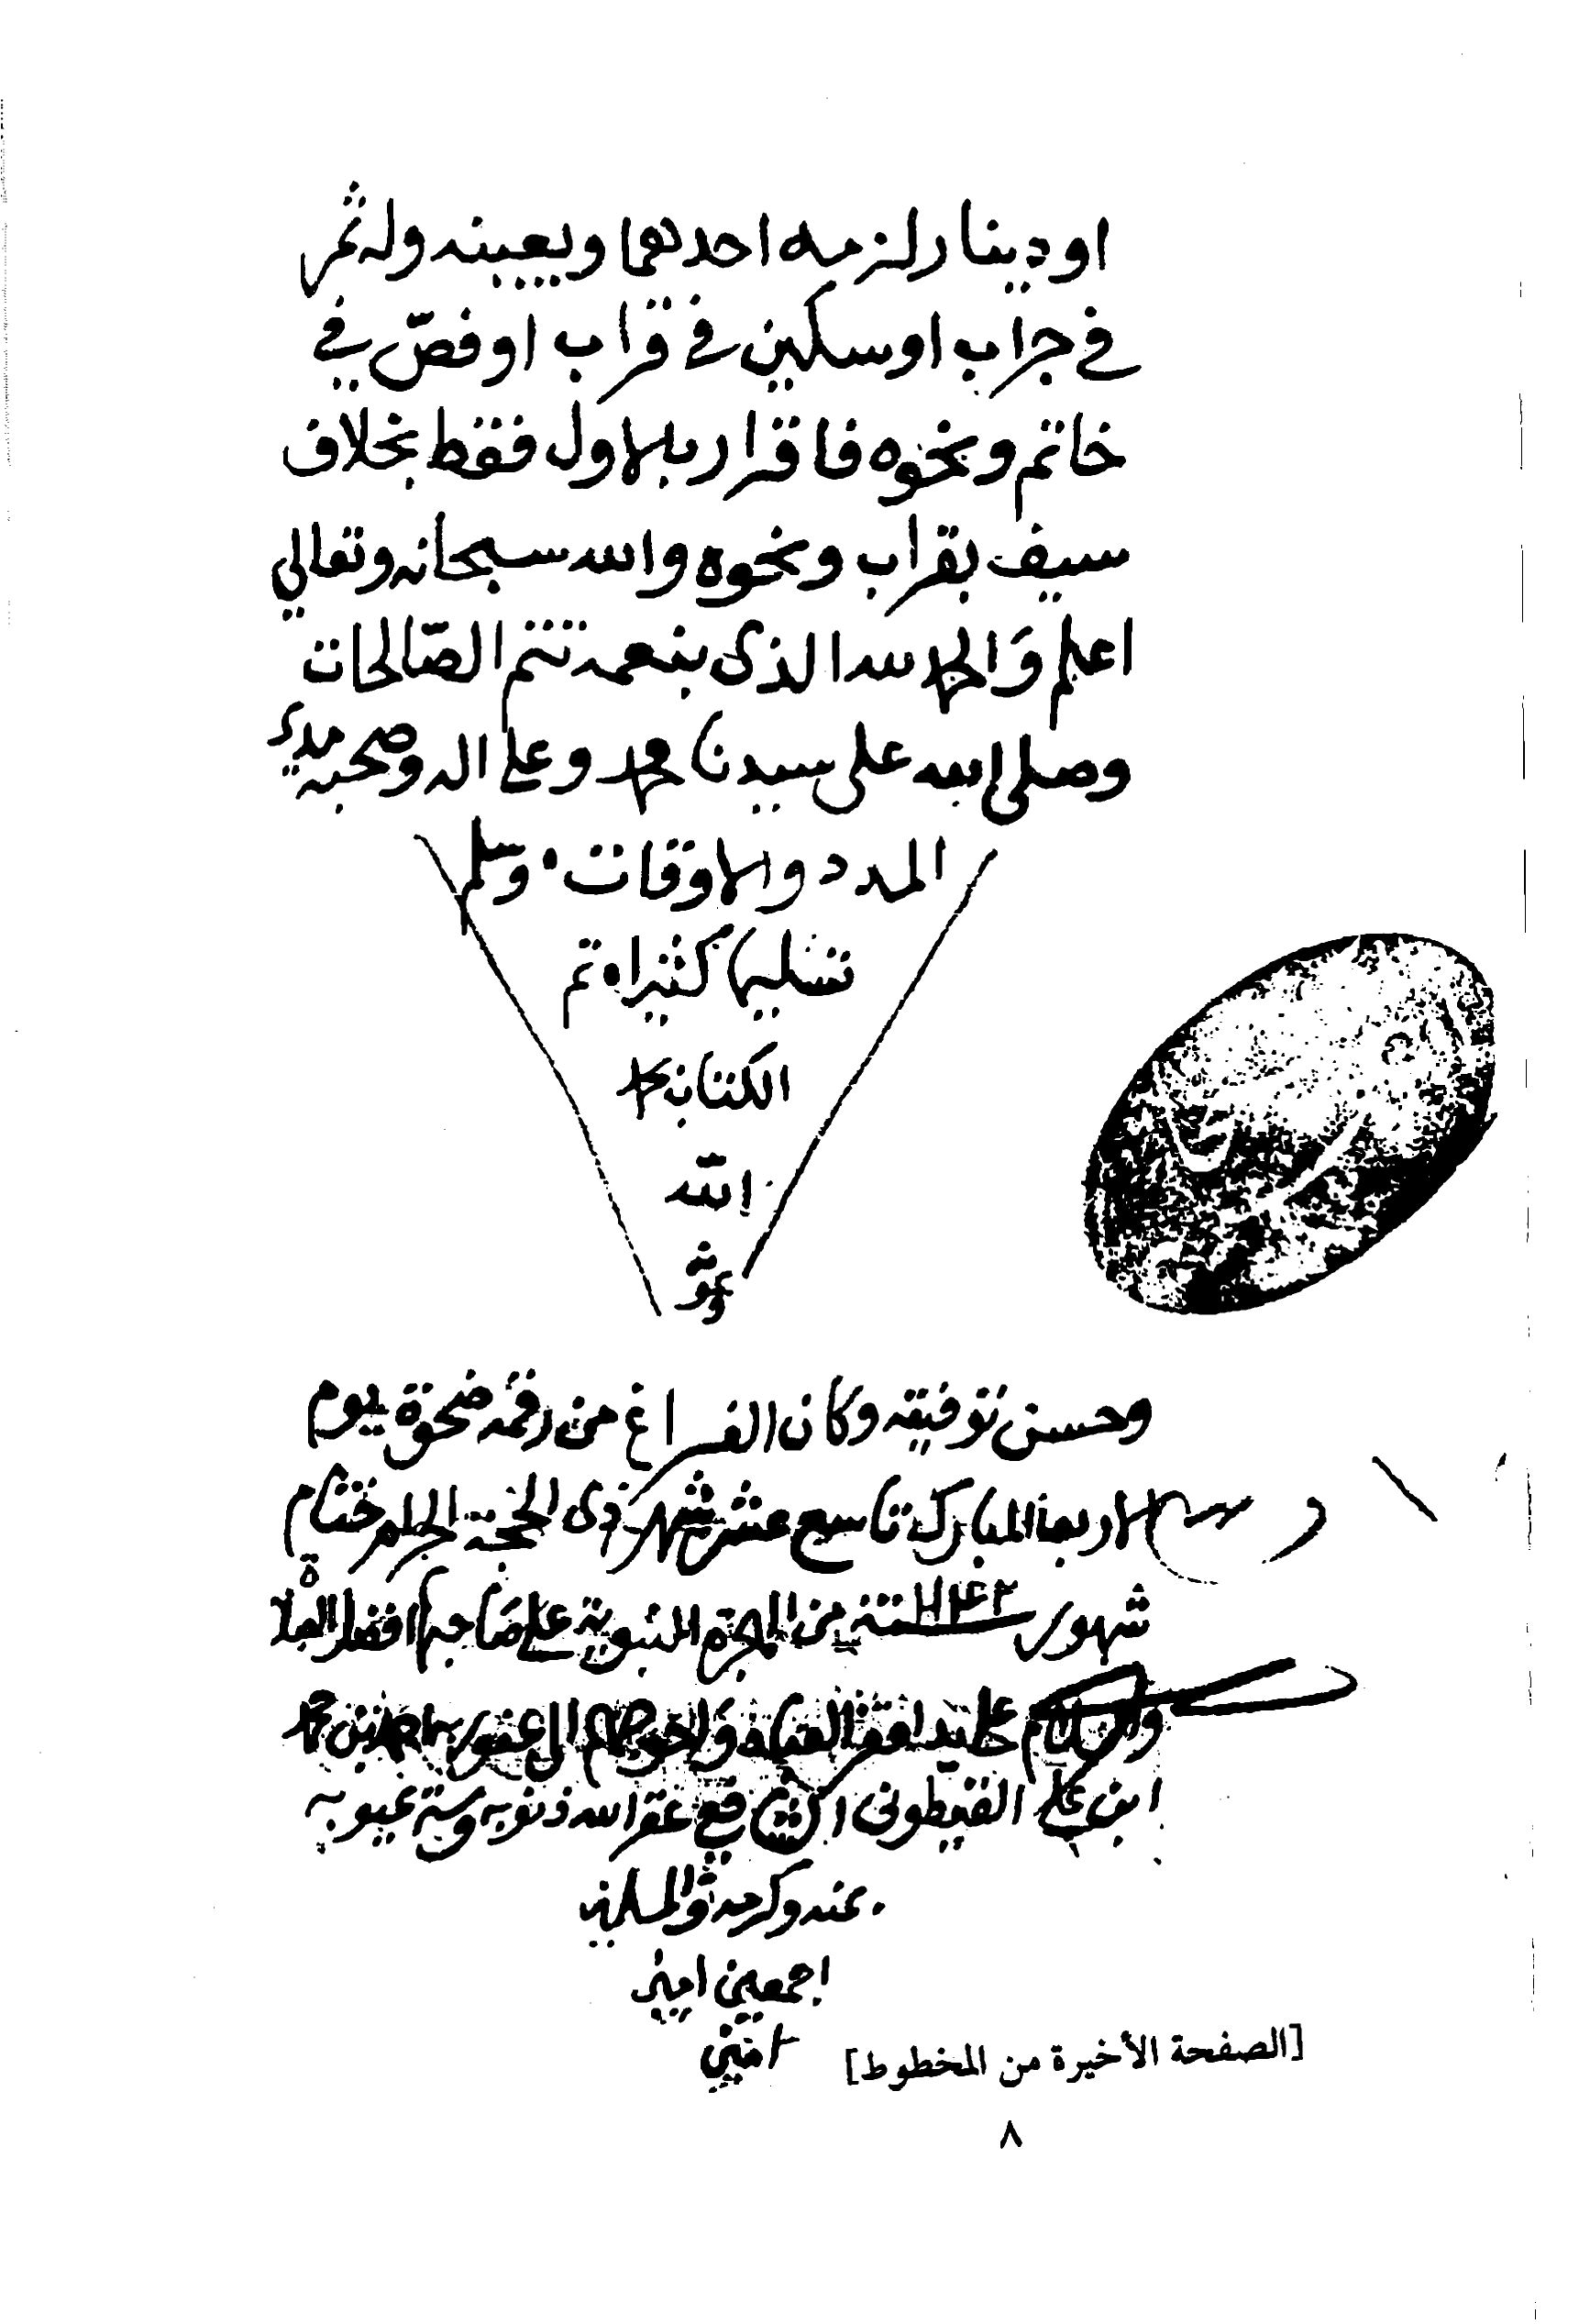 او دينار لزمه احدهما ويعينه وله ثمر
في جراب او سكين في قراب او فصّ في
خاتم ونحوه فاقرار بالاول فقط بخلاف
سيف بقراب ونحوه والله سبحانه وتعالي
اعلم وَالحمد لله الذى بنعمته تتم الصّالحات
وصلى الله على سيدنا محمد وعلى اله وصحبه مدىٰ
المدد والاوقات ٠ وسلم
تسليما كثيرا ٠ تم
الكتاب بحمد
الله
وعونه
وحسن توفيقه وكان الفراغ من رقمه ضحوة يوم
الاربعا المبارك تاسع عشر شهر ذى الحجة الحرام ختام
شهور سنة ١١٤٢ من الهجرة النبوية على صَاحبها افضل الصلاة
والسلام على يد افقر العباد وَاحوجهم الى عفو ربه احمد بن محمد
ابن علي الفيطونى الشافعي غفر الله ذنوبه وستر عيوبه
بمنه وكرمه والمسلمين
اجمعين امين
امين
[الصفحة الأخيرة من المخطوط]
٨